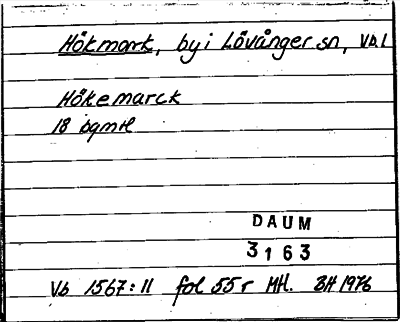 Hökmark, by i Lövånger sn, Vb.l
Hökemarck
18 bgmtl
DAUM
3163
Vb 1567:11 fol 55 r Mtl. BH 1976